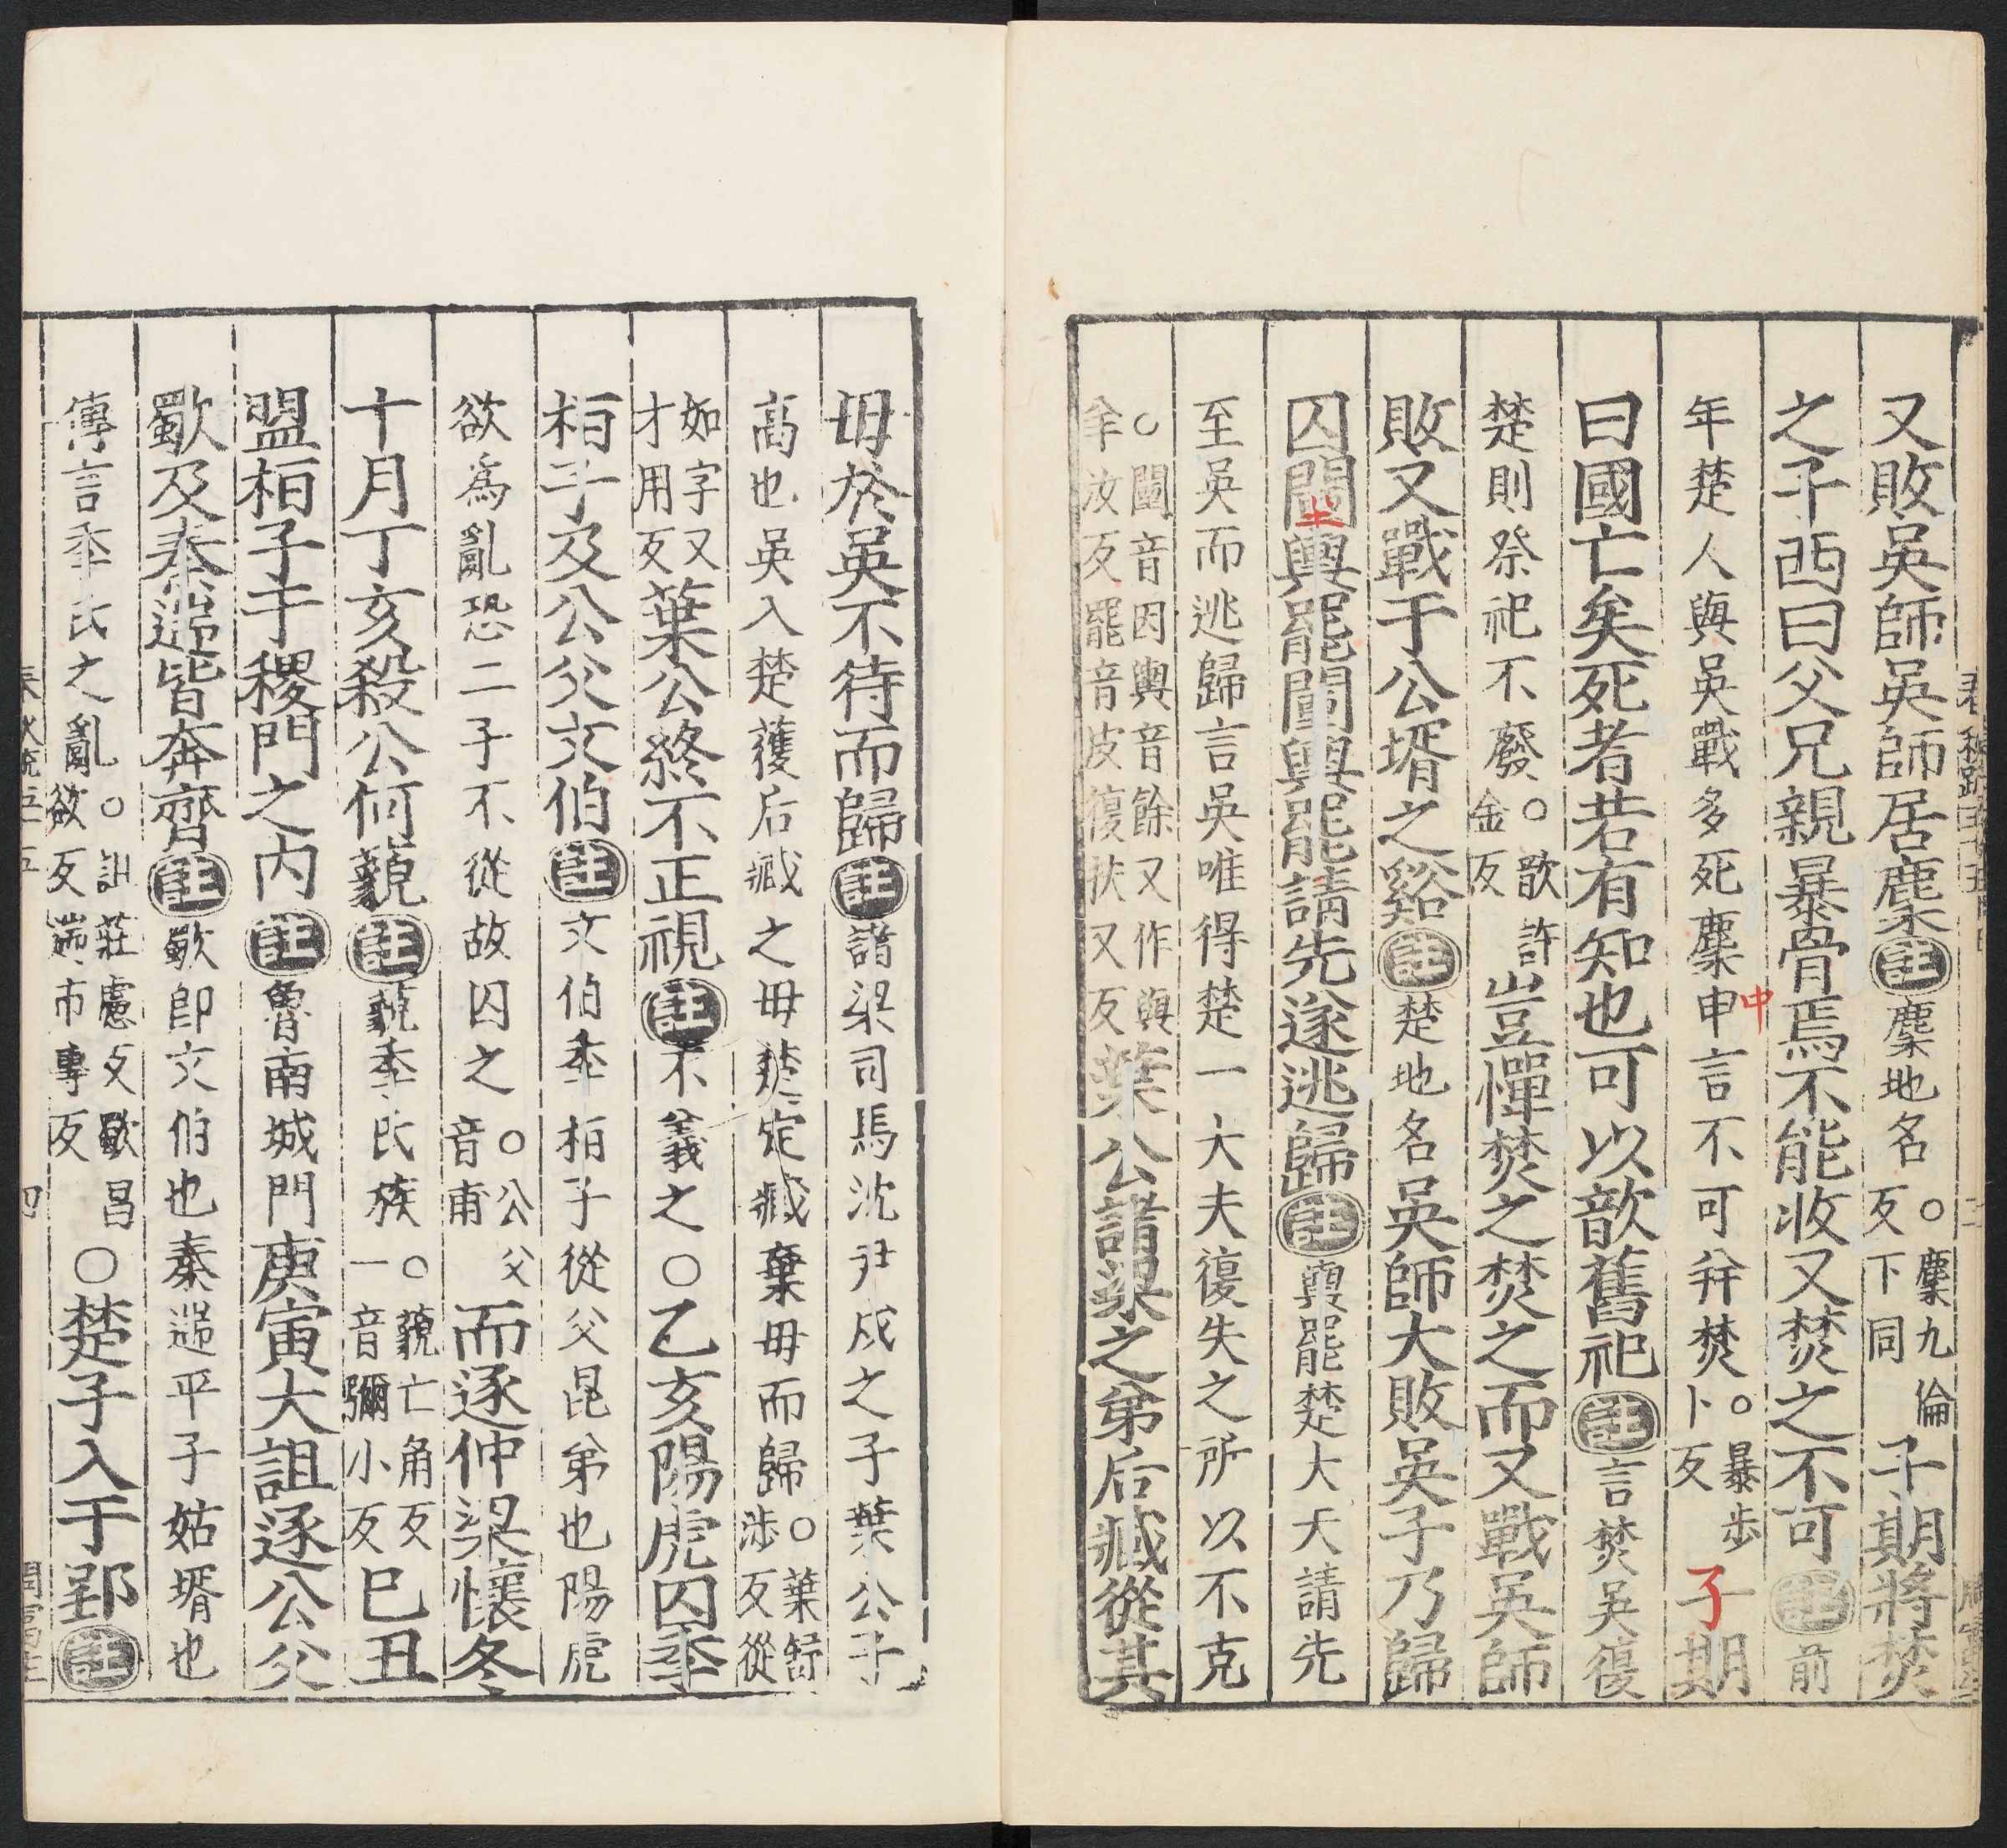 又敗吳師吳師居麇註麇地名○麇九倫反下同子期將焚
之子西曰父兄親暴骨焉不能收又焚之不可註前
年楚人與吳戰多死麇中中言不可并焚○暴步卜反子期
曰國亡矣死者若有知也可以歆舊祀註言焚吳復
楚則祭祀不廢○歆許金反豈憚焚之焚之而又戰吳師
敗又戰于公壻之谿註楚地名吳師大敗吳子乃歸
囚闉輿罷闉輿罷請先遂逃歸註輿罷楚大夫請先
至吳而逃歸言吳唯得楚一大夫復失之所以不克
○闉音因輿音餘又作與年汝反罷音皮復扶又反葉公諸梁之弟后臧從其
毋於吳不待而歸註諸梁司馬沈尹戌之子葉公子
高也吳入楚獲后臧之毋楚定臧棄毋而歸○葉舒涉反從
如字又才用反葉公終不正視註不義之○乙亥陽虎囚季
桓子及公父文伯註文伯季桓子從父昆弟也陽虎
欲爲亂恐二子不從故囚之○公父音甫而逐仲梁懷冬
十月丁亥殺公何藐註藐季氏族○藐亡角反一音彌小反巳丑
盟桓子于稷門之内註魯南城門庚寅大詛逐公父
歜及秦遄皆奔齊註歜即文伯也秦遄平子姑壻也
傳言季氏之亂○詛莊慮反歜昌欲反遄市專反○楚子入于郢註